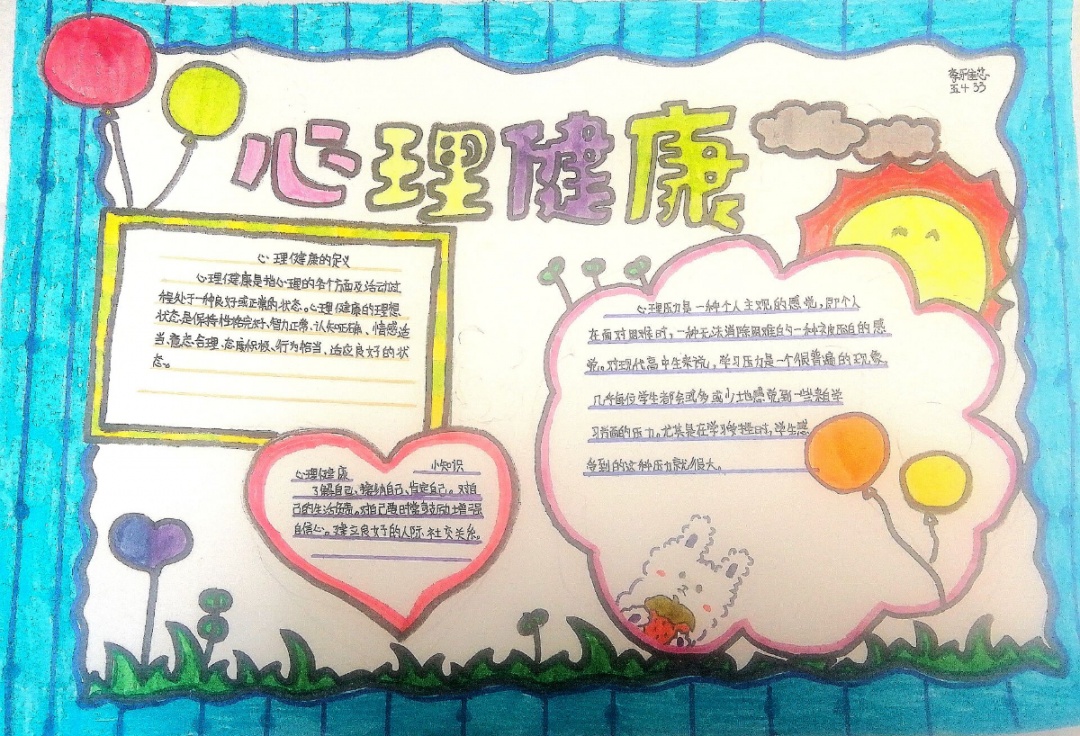 心理健康
五4 33
心理健康的定义
心理健康是指心理的各个方面及活动过
程处于一种良好或正常的状态。心理健康的理想
状态是保持性格完好、智力正常、认知正确、情感适
当、意志合理、态度积极、行为恰当、适应良好的状
态。
心理压力是一种个人主观的感觉，即个人
在面对困难时，一种无法消除困难的一种被压迫的感
觉。对现代高中生来说，学习压力是一个很普遍的现象。
几乎每位学生都会或多或少地感觉到一些来自学
习方面的压力。尤其是在学习时，学生感
受到的这种压力就很大。
心理健康 小知识
了解自己、接纳自己、肯定自己。对自
己的生活负责。对自己要时常鼓励增强
自信心。建立良好的人际、社交关系。